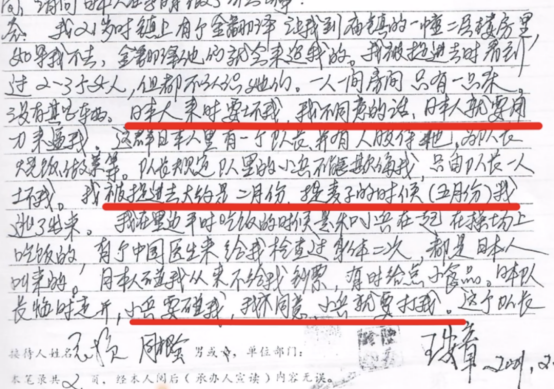 答：我21岁时镇上有个金翻译让我到庙镇的一幢二层楼房里,
如果我不去，金翻译他的就会来逼我的。我被捉进去时看到
过2-3个女人，但都不认识她们。一人一间房间 只有一只床。
没有其它东西。日本人来时要坏我，我不同意的话，日本人就要用
刀来逼我。这群日本人里有一个队长，并有人服侍他，为队长
烧饭、做菜等。队长规定队里的小兵不能欺侮我，只由队长一人
坏我。我被捉进去大约是二月份，捉麦子的时候（五月份）我
逃了出来。我在里边平时吃饭的时候是和小兵在一起 在操场上
吃饭的，有个中国医生来给我检查过身体二次，都是日本人
叫来的。日本人碰我从来不给我钞票，有时给点小食品。日本队
长临时走开，小兵要碰我，我不同意，小兵就要打我。这个队长
接待人姓名 男或女，单位部门：
本笔录共2页，经本人阅后（承办人宣读）内容无误。
2001.2